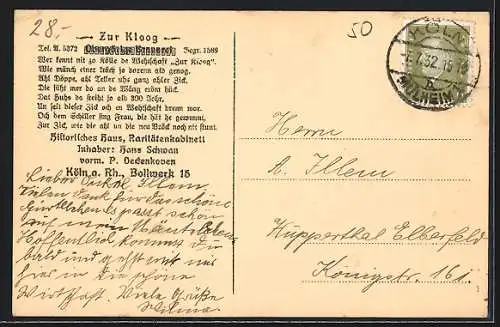 28.-
50
Zur Kloog
Tel. A. 5372 Begr. 1589
Wer kennt nit zo Kölle de Wehtschaft „Zur Kloog".
Wie münch einer träch jo dorem ald genog.
Ahl Döppe, ahl Teller uhs ganz ahler Zick,
Die süht mer do an de Wäng eröm hück.
Dat Huhs do steiht jo all 300 Johr,
Un sait dieser Zick och en Wehtschaff drenn wor.
Och dem Schiller sing Frau, die hät he gewunnt,
Zur Zick, wie die ahl un die neu Bröck noch nit stunt.
Historisches Haus, Raritätenkabinett
Inhaber: Hans Schwan
vorm. P. Oedenkoven
Köln a. Rh., Bollwerk 15
Lieber Onkel Illem
Vielen Dank für das schöne
es passt schön
auf mein
Hoffentlich kommst Du
bald und gehst mit mir
hier in die schöne
Wirtschaft. Viele Grüße
Wilma
KÖLN
7.32.15
MÜLHEIM
Herrn
A. Illem
Wupperthal Elberfeld
Königstr. 161.